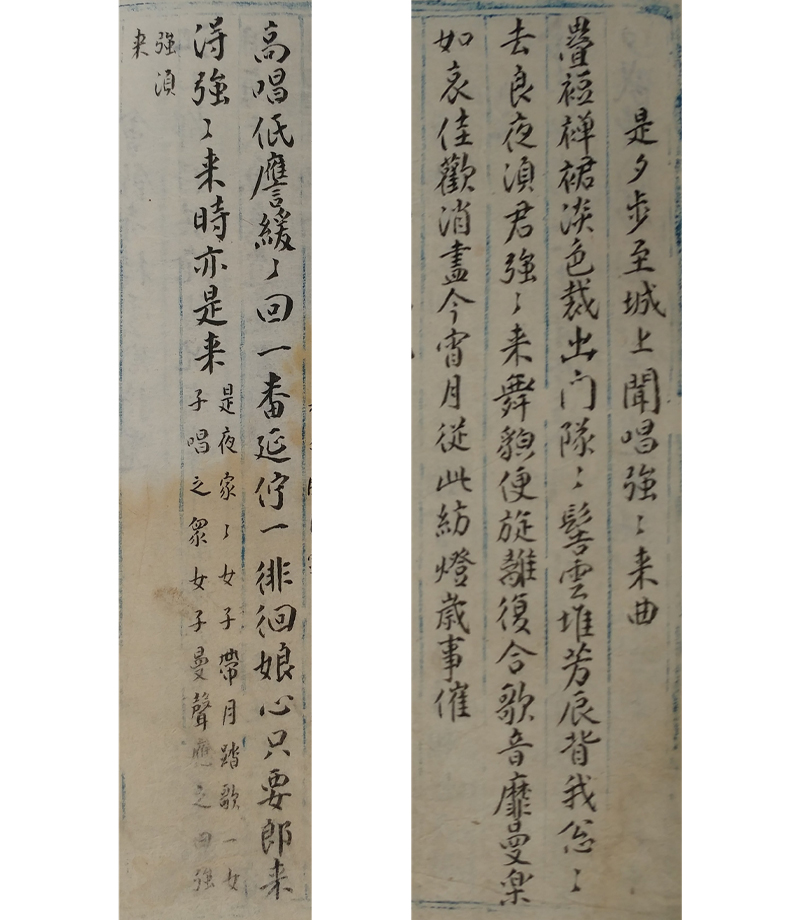 是夕步至城上聞唱強〻来曲
疊裋襌裙淡色裁出門隊〻髻雲堆芳辰背我怱〻
去良夜湏君強〻来舞貌便旋離復合歌音靡曼楽
如哀佳歡消盡今宵月從此紡燈歲事催
高唱低譍緩〻回一畨延佇一徘徊娘心只要郎来
淂強〻来時亦是来
是夜家〻女子帶月踏歌一女
子唱之眾女子曼聲應之曰強
強湏
来